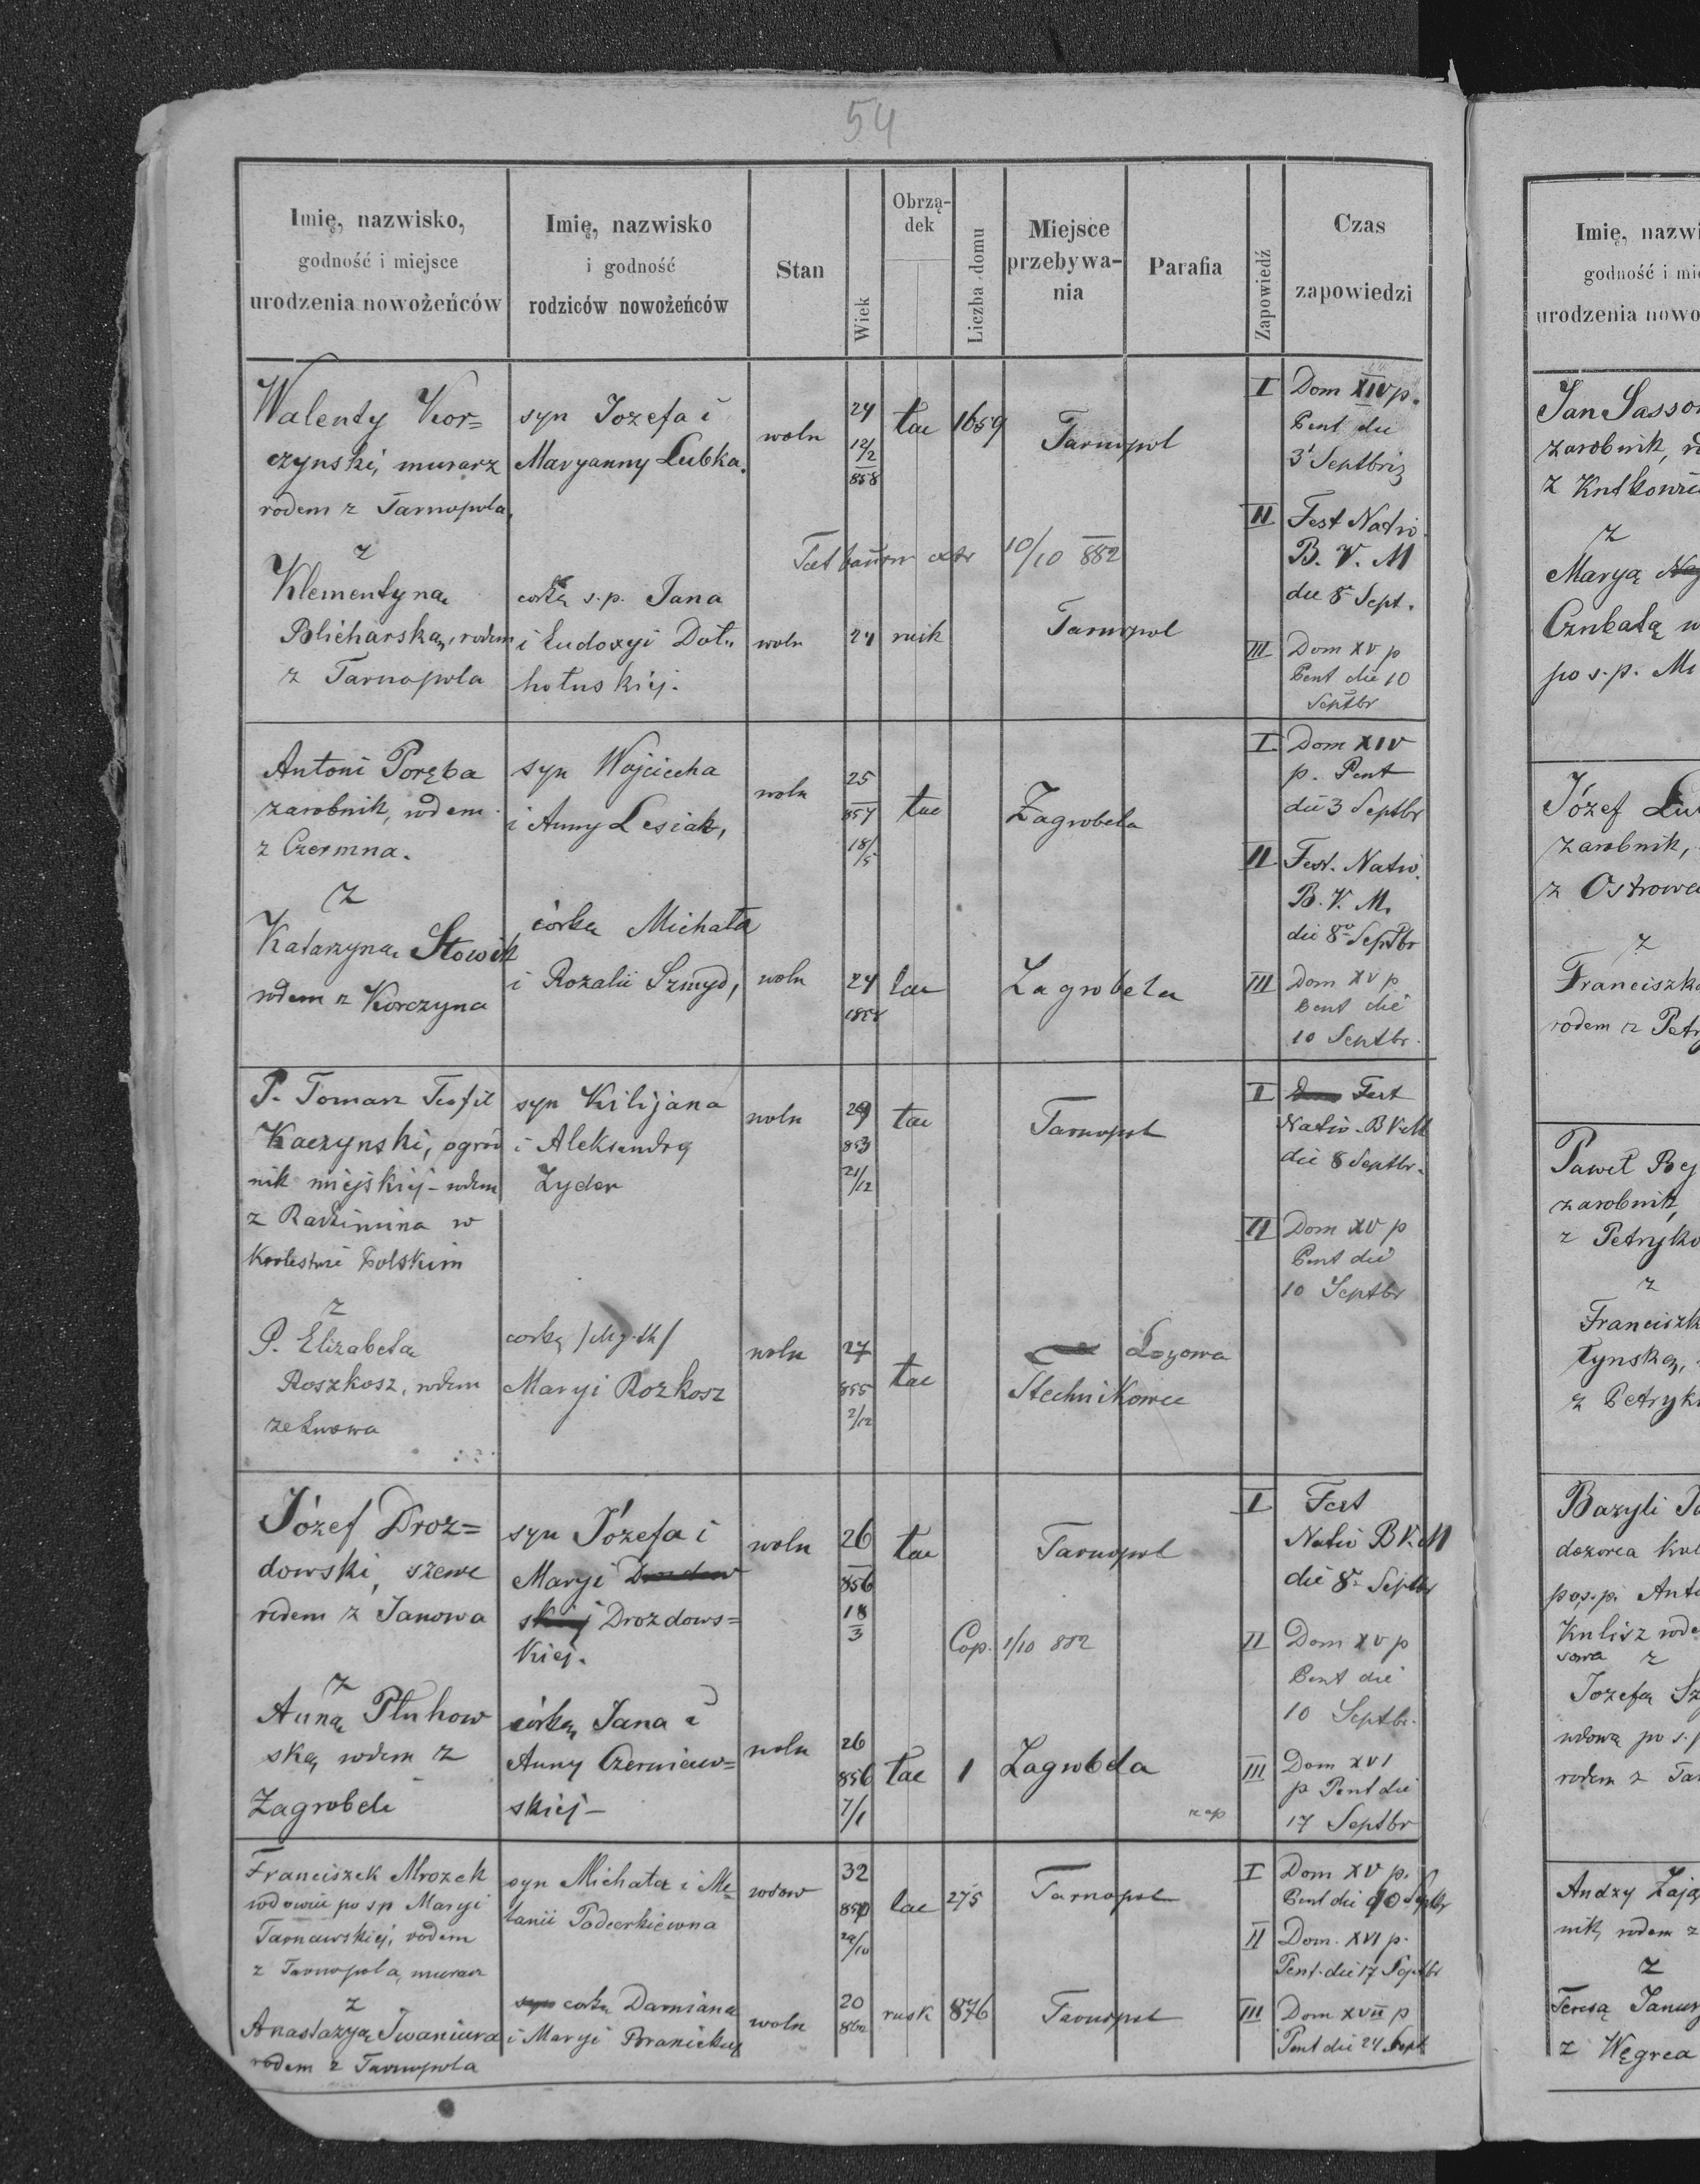 54
Imię, nazwisko,
godność i miejsce
urodzenia nowożeńców
Imię, nazwisko
i godność
rodziców nowożeńców
Stan
Wiek
Obrzą-
dek
Liczba domu
Miejsce
przebywa-
nia
Parafia
Zapowiedź
Czas
zapowiedzi
Walenty Kor=
czynski, murarz
rodem z Tarnopola,
syn Jozefa i
Maryanny Lubka.
woln
24
12/2
858
łac
1659
Tarnopol
I Dom XIV p.
Pent die
3 Septbris
z
Klementyną
Blicharską, rodem
z Tarnopola
corką s.p. Jana
i Eudoxyi Doł„
hołuskiej.
woln
24
10/10 882
Tarnopol
II Fest Nativ.
B. V. M
die 8 Sept.
III Dom XV p
Pent die 10
Septbr
Antoni Poręba
zarobnik, rodem
z Czermna.
syn Wojciecha
i Anny Lesiak,
woln
25
857
18/5
łac
Zagrobela
I Dom XIV
p. Pent
die 3 Septbr
z
Katarzyną Słowik
rodem z Korczyna
córką Michała
i Rozalii Szmyd,
woln
24
1858
łac
Zagrobela
II Fest. Nativ.
B. V. M.
die 8 Septbr
III Dom XV p
Pent die
10 Septbr.
P. Tomasz Teofil
Kaczynski, ogrod
nik miejskiej - rodem
z Radzimina w
Krolestwie Polskim
syn Kilijana
i Aleksandry
Zyder
woln
29
853
21/12
łac
Tarnopol
I Fest
Nativ. B V. M
die 8 Septbr.
II Dom XV p
Pent die
10 Septbr
z
P. Elizabeta
Roszkosz, rodem
ze Lwowa
corką
Maryi Rozkosz
woln
27
855
2/12
łac
Łozowa
Stechnikowce
Józef Droz=
dowski, szewc
rodem z Janowa
syn Józefa i
Maryi
Drozdows=
kiej.
woln
26
856
18/3
łac
Tarnopol
Cop. 1/10 882
I Fest
Nativ B V. M
die 8 Septbr
II Dom XV p
Pent die
10 Septbr.
z
Anną Płuhow
ską rodem z
Zagrobeli
córką Jana i
Anny Czerniew=
skiej -
woln
26
856
7/1
łac
1
Zagrobela
III Dom XVI
p Pent die
17 Septbr
Franciszek Mrozek
wdowiec po sp Maryi
Tarnawskiej, rodem
z Tarnopola, murarz
syn Michała i Me=
lanii
wdow
32
850
29/10
łac
275
Tarnopol
I Dom XV p.
Pent die 10 Septbr
II Dom. XVI p.
Pent. die 17 Septbr
z
Anastazyą Iwaniura
rodem z Tarnopola
corką Damiana
i Maryi
woln
20
862
rusk
876
Tarnopol
III Dom XVII p
Pent die 24 Sept
Imię, nazwi
godność i mie
urodzenia nowo
Jan Sasso
zarobnik,
z
Maryą
po s.p. Mi
Józef
zarobnik,
z Ostrowa
z
Franciszk
rodem z Petry
Paweł
zarobnik,
z Petryko
z
Franciszk
tynską,
z Petryk
Bazyli
dozorca
po s.p. Ant
Kulisz rode
z
Jozefą Sz
wdową po s.p
rodem z Tar
Zają
nik, rodem z
z
Teresą
z Węgrea